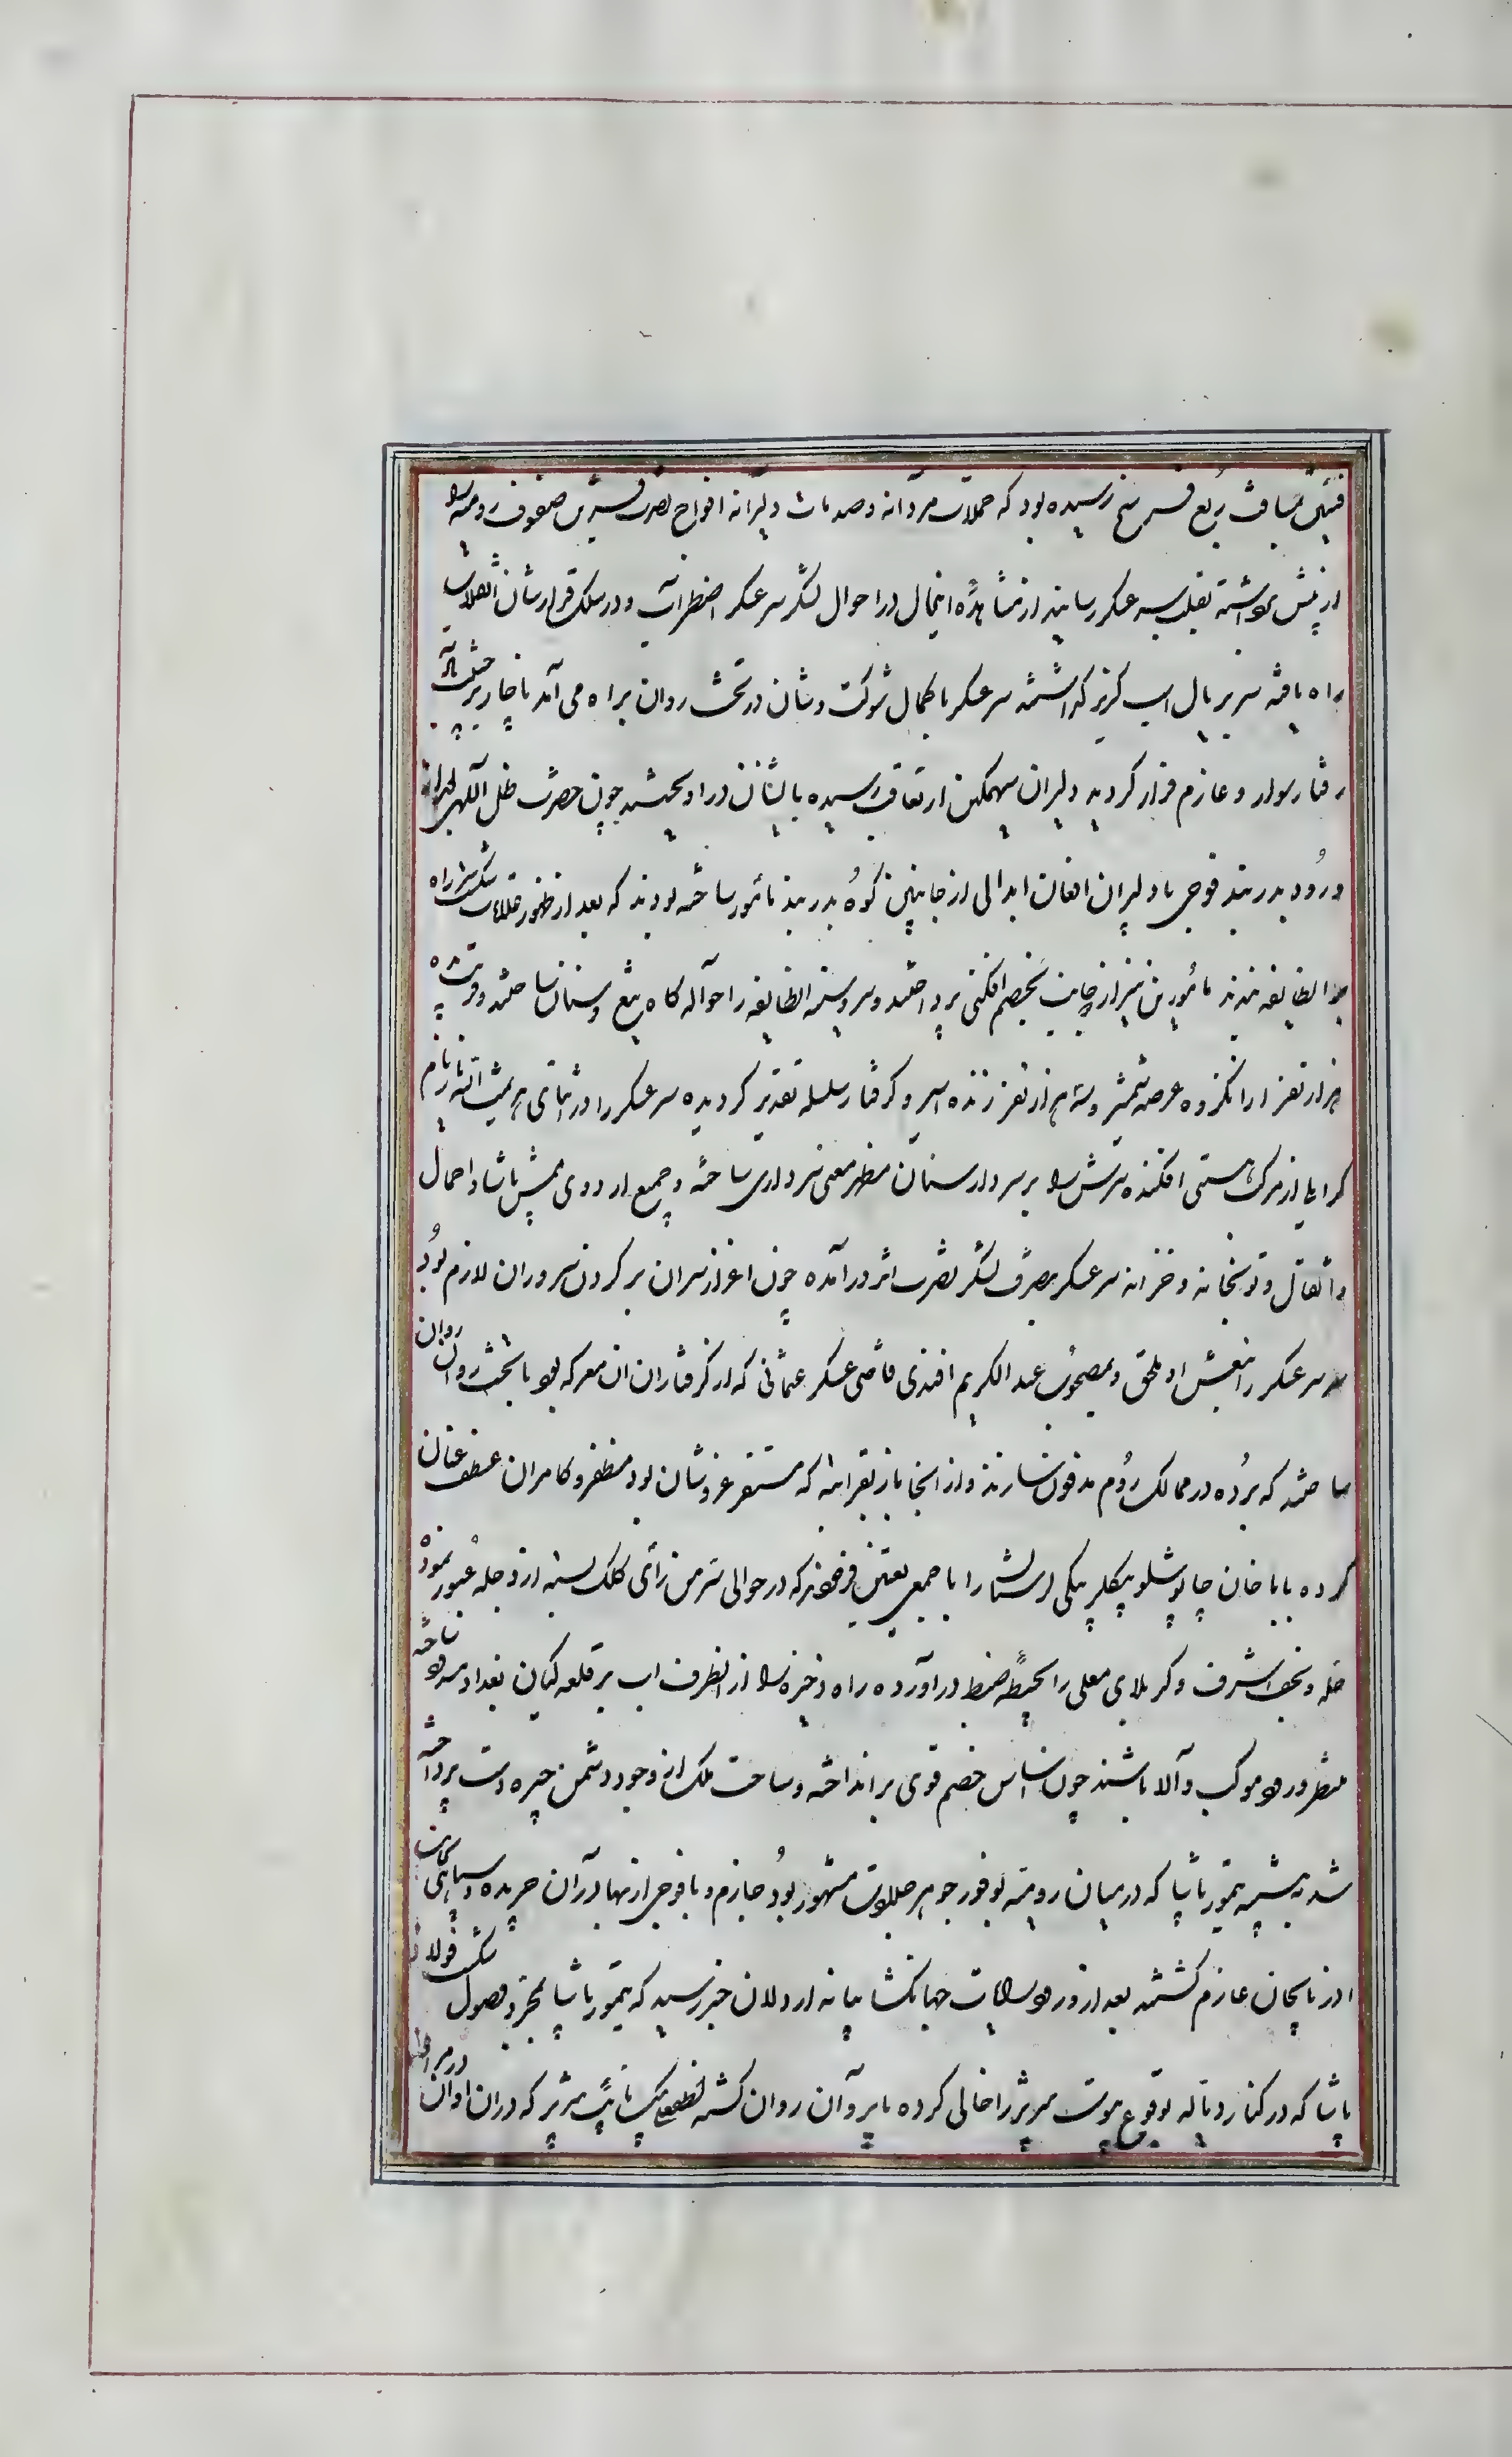 فئتین بمسافت ربع فرسخ رسیده بود که حملات مردانه و صدمات دلیرانه افواج نصرت قرین صفوف رومیه را
از پیش برداشته بقلب سرعسکر رسانیدند از مشاهده اینحال در احوال لشکر سرعسکر اضطراب و در سلک قرارشان انقلاب
راه یافته سر بر یال اسب گریز گذاشتند سرعسکر با کمال شوکت و شان در تخت روان براه می آمد ناچار بر
رفتار سوار و عازم فرار گردید دلیران سهمگین از تعاقب رسیده بایشان در اویختند چون حضرت ظل اللهی
ورود بدربند فوجی با دلیران افغان ابدالی از جانبین کوه بدربند مامور ساخته بودند که بعد از ظهور علامات شکست سر راه
بر انطایفه بندند مامورین نیز از جانبین بخصم افکنی پرداختند و سر و سینه انطایفه را حواله گاه تیغ و سنان ساختند و قریب ده
هزار نفر از انگروه عرضه شمشیر و سه هزار نفر زنده اسیر و گرفتار سلسله تقدیر گردیده سرعسکر را در اثنای هزیمت الله یار نام
گرایلی از مرکب هستی افکنده سرش را بر سر دار سنان مظهر معنی سرداری ساخته و جمیع اردوی ممش پاشا و احمال
و اثقال و توپخانه و خزانه سرعسکر بتصرف لشکر نصرت اثر در آمده چون اعزاز سران بر گردن سروران لازم بود
سر سرعسکر را بنعش او ملحق و بمصحوب عبد الکریم افندی قاضی عسکر عثمانی که از گرفتاران ان معرکه بود با تخت روان روان
ساختند که برده در ممالک روم مدفون سازند و از انجا باز بقراتپه که مستقر عز و شان بود مظفر و کامران عطف عنان
کرده بابا خان چاپوشلو بیگلربیگی لرستان را با جمعی تعیین فرمودند که در حوالی سر من رأی کلک بسته از دجله عبور نموده
حله و نجف اشرف و کربلای معلی را بحیطه ضبط در اورده راه ذخیره را از انطرف اب بر قلعه کیان بغداد مسدود ساخته
منتظر ورود موکب والا باشند چون اساس خصم قوی بر انداخته و ساحت ملک از وجود دشمن چیره دست پرداخته
شد به تنبیه تیمور پاشا که در میان رومیه بوفور جوهر جلادت مشهور بود جازم و با فوجی از بهادران جریده و سبای بجانب
اذربایجان عازم گشتند بعد از ورود رایات جهانگشا بیانه اردلان خبر رسید که تیمور پاشا بمجرد وصول شکست فولاد
پاشا که در کنار دیاله بوقوع پیوست تبریز را خالی کرده با پروان روان گشته لطفعلی بیک نایب تبریز که در ان اوان در مراغه